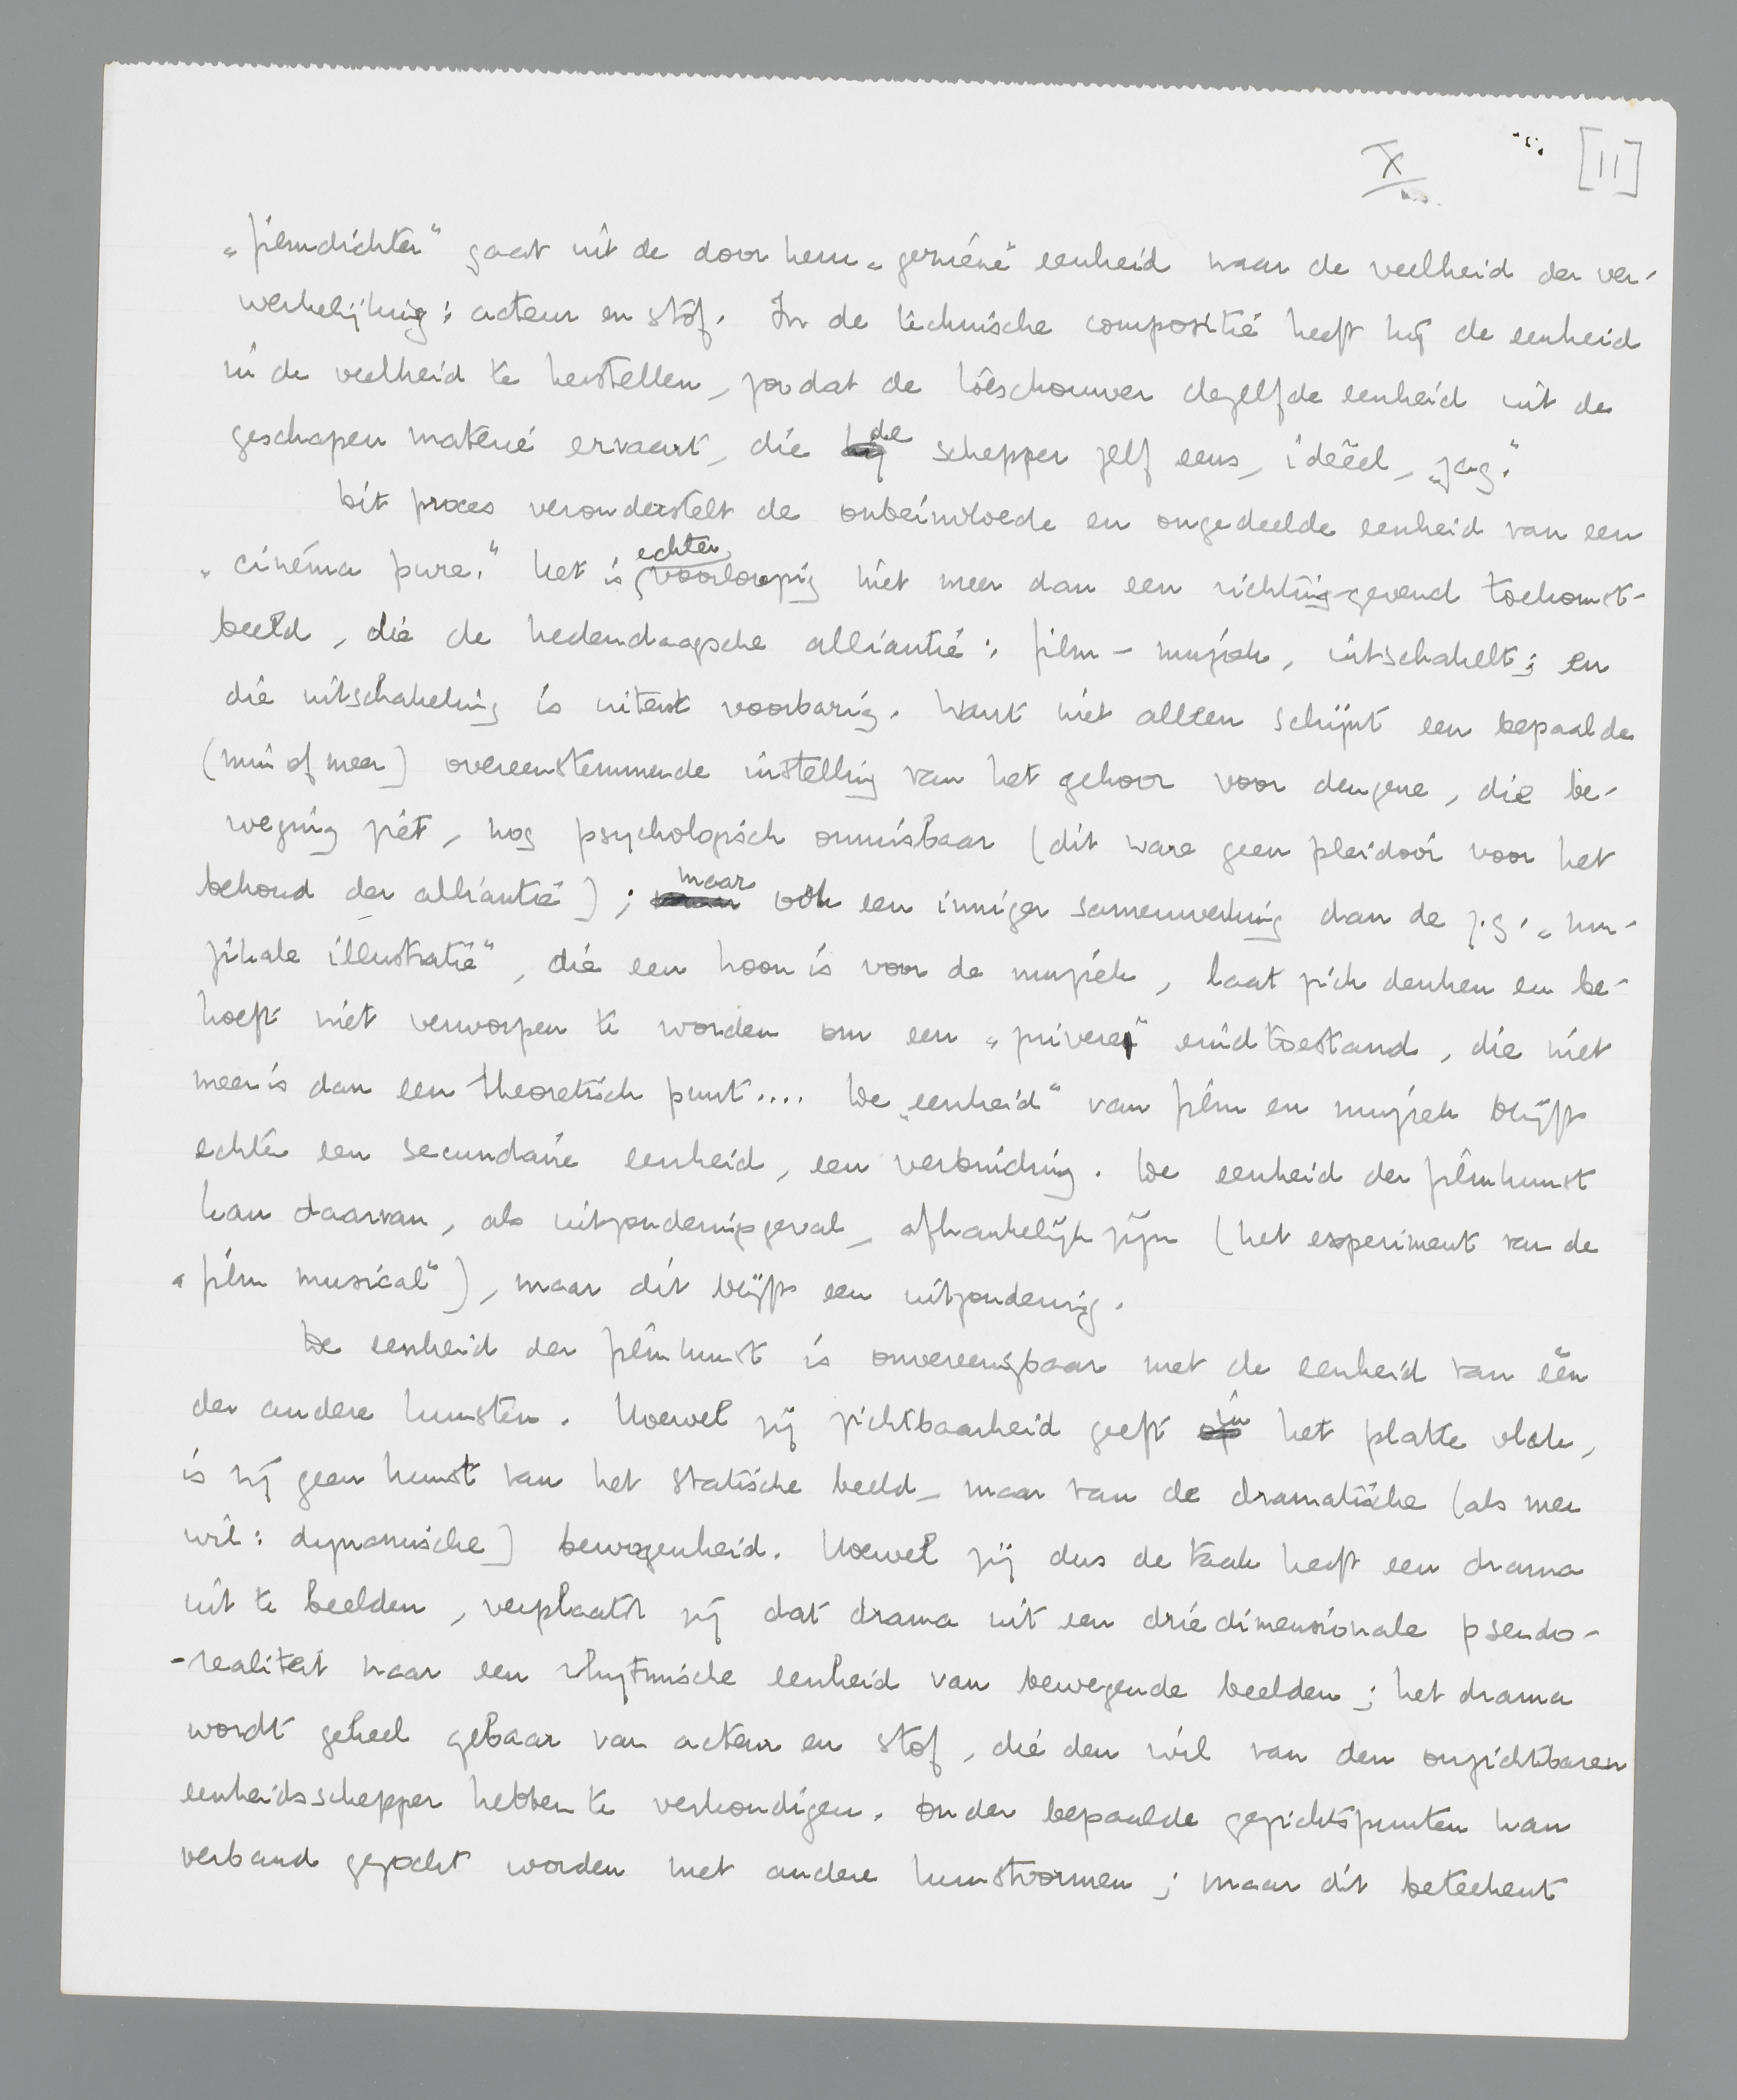 X [11]
„filmdichter" gaat uit de door hem „geziene" eenheid naar de veelheid der ver-
werkelijking: acteur en stof. In de technische compositie heeft hij de eenheid
in de veelheid te herstellen, zoodat de toeschouwer dezelfde eenheid uit de
geschapen materie ervaart, die de schepper zelf eens, ideëel, „zag."
Dit proces veronderstelt de onbeinvloede en ongedeelde eenheid van een
„cinéma pure." Het is echter voorloopig niet meer dan een richting-gevend toekomst-
beeld, die de hedendaagsche alliantie: film-muziek, uitschakelt; en
die uitschakeling is uiterst voorbarig. Want niet alleen schijnt een bepaalde
(min of meer) overeenstemmende instelling van het gehoor voor dengene, die be-
weging ziet, nog psychologisch onmisbaar (dit ware geen pleidooi voor het
behoud der alliantie); maar ook een inniger samenwerking dan de z.g. „mu-
zikale illustratie", die een hoon is voor de muziek, laat zich denken en be-
hoeft niet verworpen te worden om een „zuivere" eindtoestand, die niet
meer is dan een theoretisch punt.... De „eenheid" van film en muziek blijft
echter een secundaire eenheid, een verbinding. De eenheid der filmkunst
kan daarvan, als uitzonderingsgeval, afhankelijk zijn (het experiment van de
„film musical"), maar dit blijft een uitzondering.
De eenheid der filmkunst is onvereenigbaar met de eenheid van één
der andere kunsten. Hoewel zij zichtbaarheid geeft in het platte vlak,
is zij geen kunst van het statische beeld, maar van de dramatische (als men
wil: dynamische) bewogenheid. Hoewel zij dus de taak heeft een drama
uit te beelden, verplaatst zij dat drama uit een driedimensionale pseudo-
-realiteit naar een rhytmische eenheid van bewegende beelden; het drama
wordt geheel gebaar van acteur en stof, die den wil van den onzichtbaren
eenheidsschepper hebben te verkondigen. Onder bepaalde gezichtspunten kan
verband gezocht worden met andere kunstvormen; maar dit beteekent